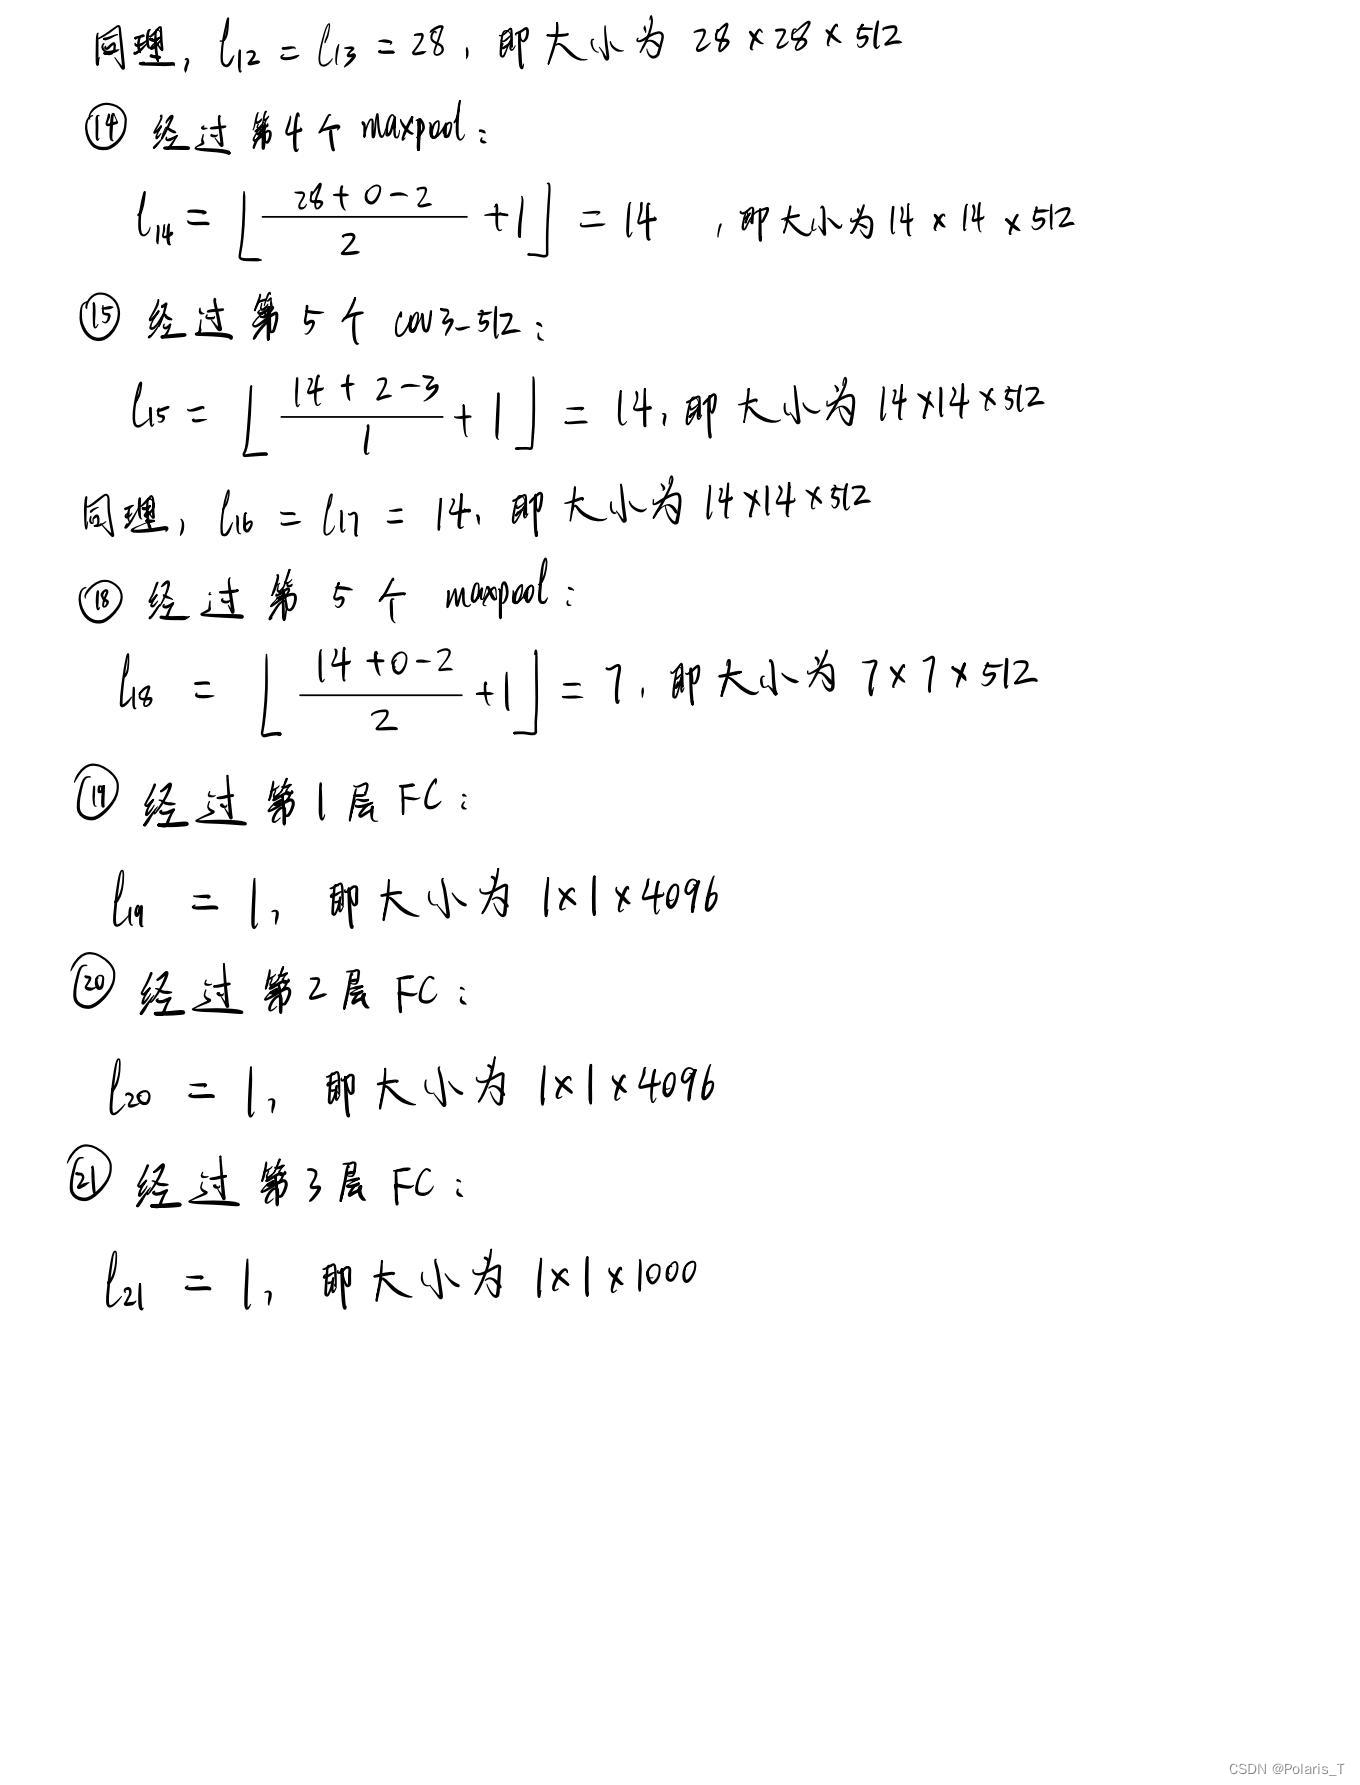 同理, l₁₂ = l₁₃ = 28, 即大小为 28×28×512
⑭ 经过第4个 maxpool:
l₁₄ = ⌊(28+0-2)/2 +1⌋ = 14 , 即大小为 14×14×512
⑮ 经过第5个 cov3-512:
l₁₅ = ⌊(14+2-3)/1 +1⌋ = 14, 即大小为 14×14×512
同理, l₁₆ = l₁₇ = 14, 即大小为 14×14×512
⑱ 经过第5个 maxpool:
l₁₈ = ⌊(14+0-2)/2 +1⌋ = 7, 即大小为 7×7×512
⑲ 经过第1层FC:
l₁₉ = 1, 即大小为 1×1×4096
⑳ 经过第2层FC:
l₂₀ = 1, 即大小为 1×1×4096
㉑ 经过第3层FC:
l₂₁ = 1, 即大小为 1×1×1000
CSDN @Polaris_T